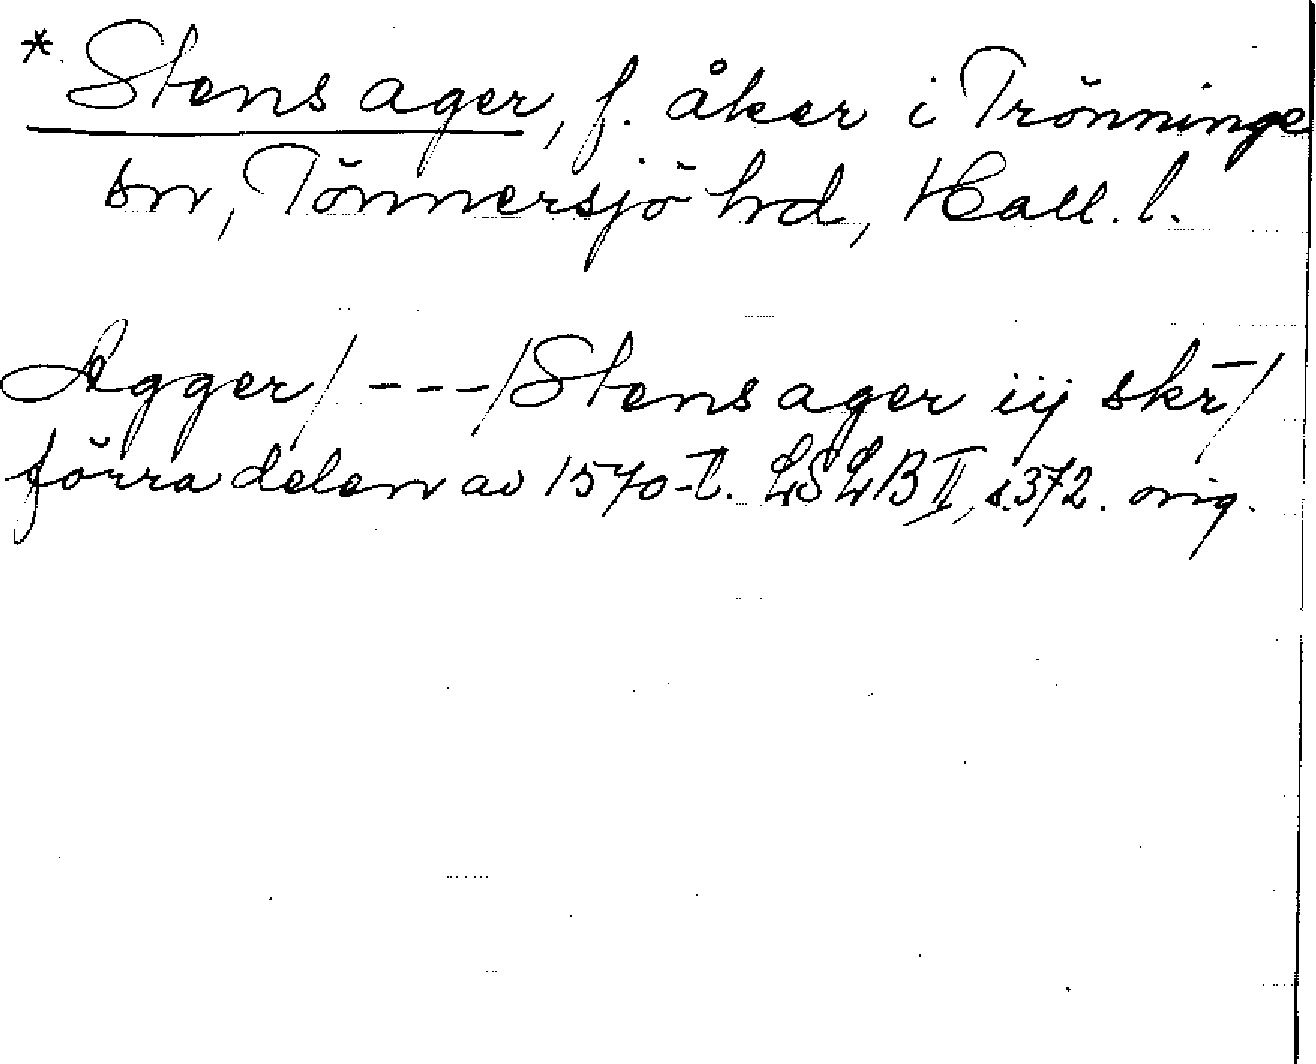 * Stens ager, f. åker i Trönninge
sn, Tönnersjö hrd, Hall. l.
Agger / --- / Stens ager iij skr̄ /
förra delen av 1570-t. LSLB II, s. 372. orig.